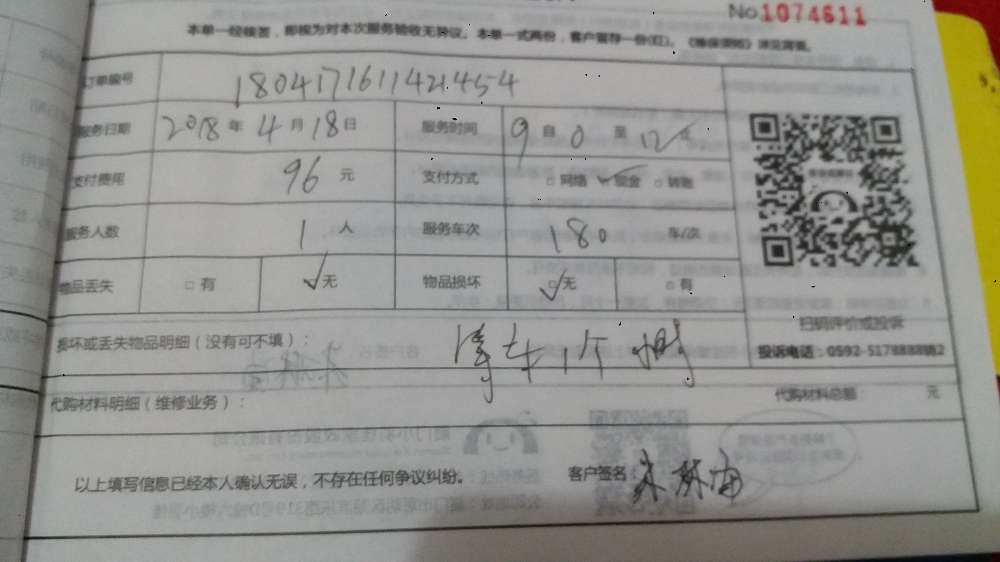 No 1074611
本单一经领签，即视为对本次服务验收无异议。本单一式两份，客户留存一份(红)。《维保须知》详见背面。
订单编号 180417161142​1454
服务日期 2018年4月18日 服务时间 9自0至12
支付费用 96元 支付方式 □网络 ✓现金 □转账
服务人数 1人 服务车次 180 车/次
物品丢失 □有 ✓无 物品损坏 ✓无 □有
损坏或丢失物品明细（没有可不填）：
扫码评价或投诉
投诉电话：0592-5178888转2
代购材料明细（维修业务）： 代购材料总额 元
以上填写信息已经本人确认无误，不存在任何争议纠纷。 客户签名：